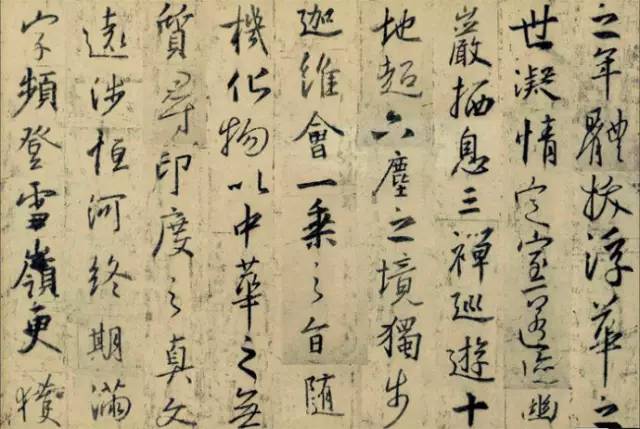 之年體拔浮華之
世凝情定室匿迹幽
巖栖息三禪巡遊十
地超六塵之境獨步
迦維會一乘之旨隨
機化物以中華之無
質尋印度之真文
遠涉恒河終期滿
字頻登雪嶺更獲